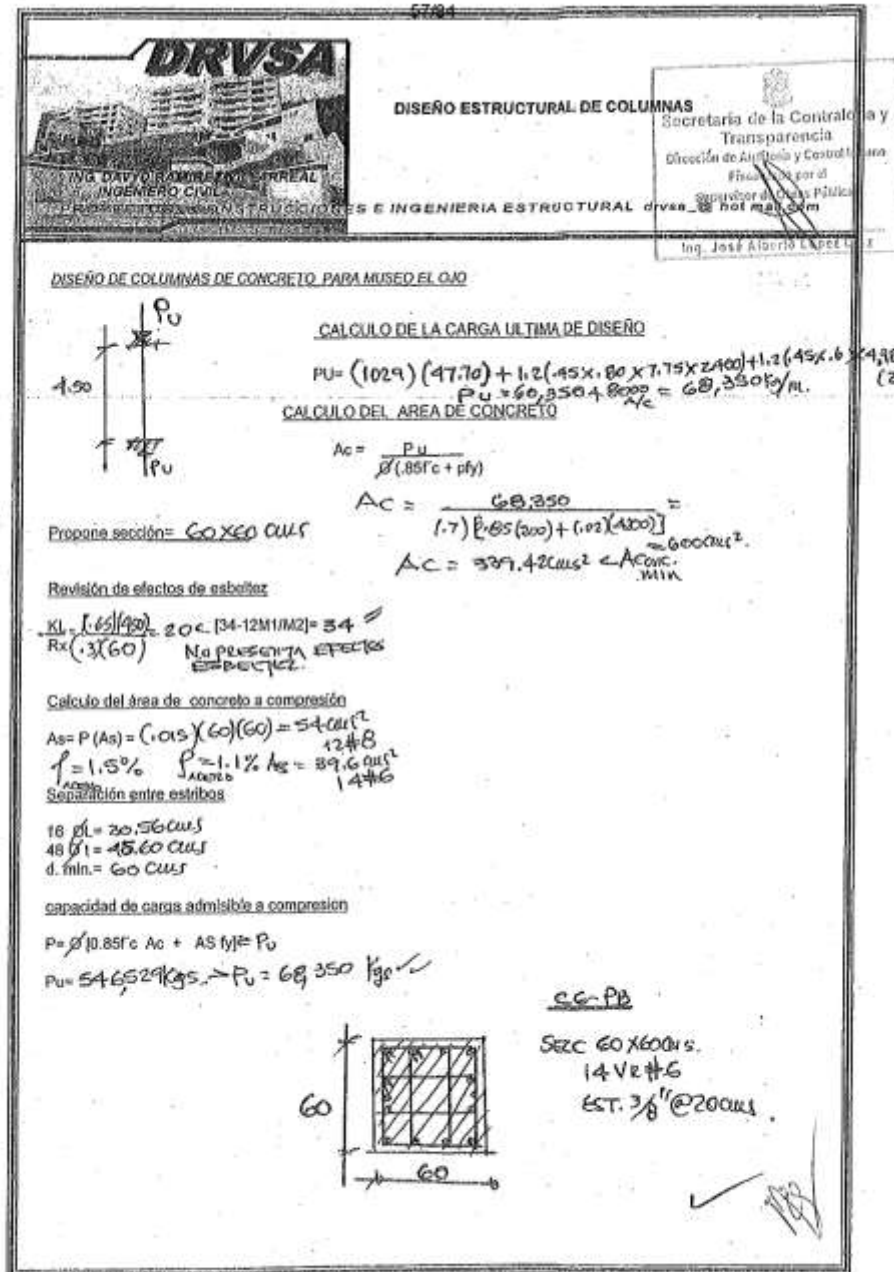 57/84
DRVSA
DISEÑO ESTRUCTURAL DE COLUMNAS
Secretaría de la Contraloría y
Transparencia
Dirección de Auditoría y Control
por el
Supervisor de Obras Pública
ING. DAVYD RAMIREZ VILLARREAL
INGENIERO CIVIL
PROYECTOS CONSTRUCCIONES E INGENIERIA ESTRUCTURAL drvsa_@ hotmail.com
Ing. José Alberto López
DISEÑO DE COLUMNAS DE CONCRETO PARA MUSEO EL OJO
PU
4.50
PU
CALCULO DE LA CARGA ULTIMA DE DISEÑO
PU= (1029) (47.70) + 1.2(.45x.80 x 7.75x2400)+1.2(.45x.6
Pu = 60,350+8000 A/C = 68,350 kg/ML.
CALCULO DEL AREA DE CONCRETO
Ac = Pu
Ø(.85f'c + pfy)
Ac = 68,350 =
(.7)[.85(200) + (.02)(4200)]
Ac = 339.42cms² < Aconc. min = 600cms².
Propone sección= 60X60 cms
Revisión de efectos de esbeltez
KL = (.65)(450) = 20 < [34-12M1/M2]= 34
Rx (.3)(60)
NO PRESENTA EFECTOS
ESBELTEZ.
Calculo del área de concreto a compresión
As= P (As) = (.015)(60)(60) = 54 cms²
12#8
ρ = 1.5% ρ = 1.1% As = 39.6 cms²
ACERO ACERO 14#6
Separación entre estribos
16 ØL= 30.56 cms
48 Ø t = 45.60 cms
d. min.= 60 cms
capacidad de carga admisible a compresion
P= Ø [0.85f'c Ac + AS fy]≥ Pu
Pu= 546,529 Kgs. > Pu = 68,350 Kgs ✓✓
C6-PB
SECC 60 X60cms.
14 VR#6
EST. 3/8"@20cms.
60
60